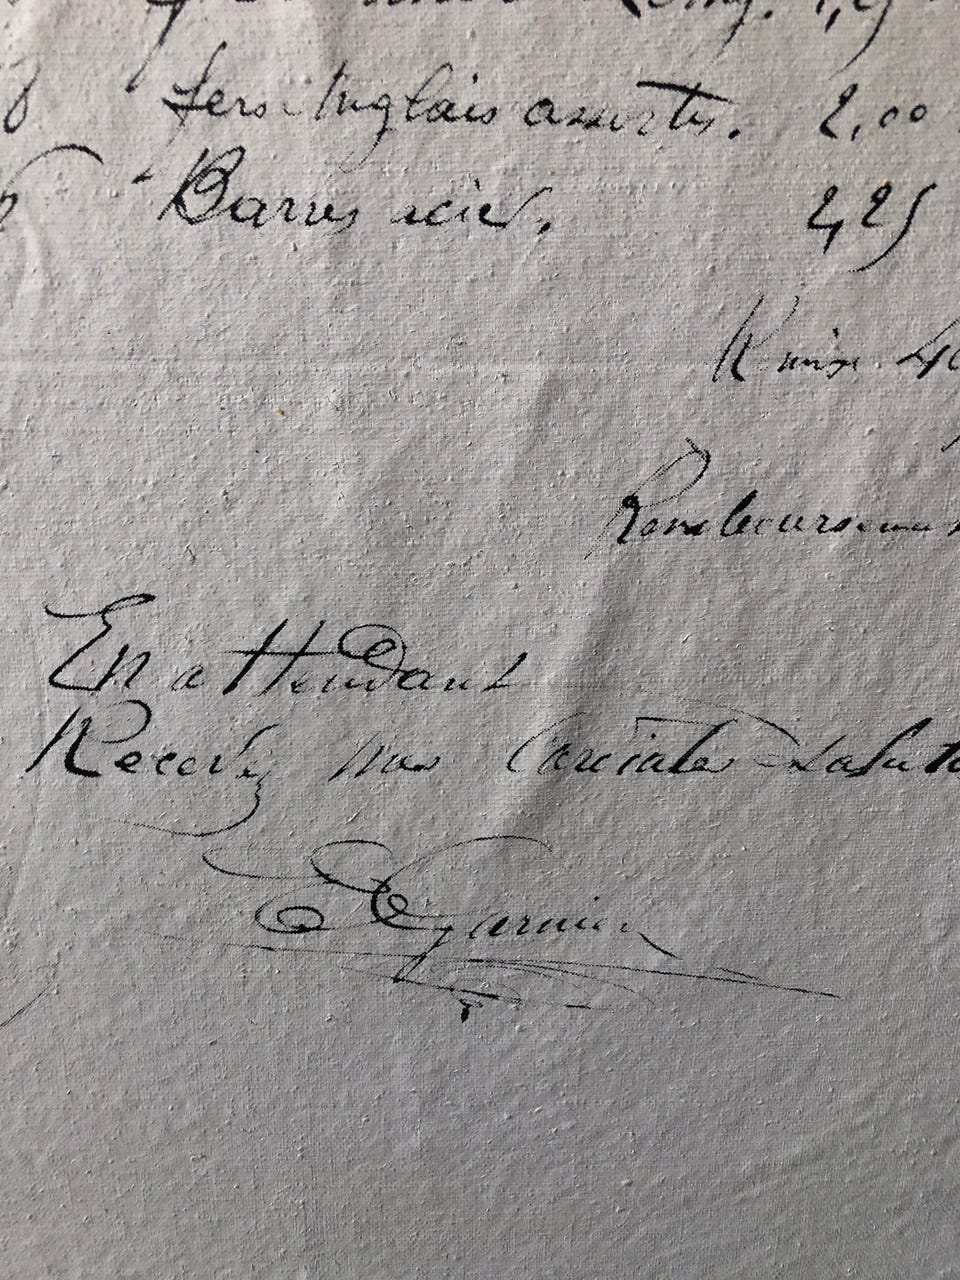 Fers Anglais assortis. 2,00
" Barres acier, 2,25
Remise 40
Remboursement
En attendant
Recevez mes Cordiales Saluta
E Garnier